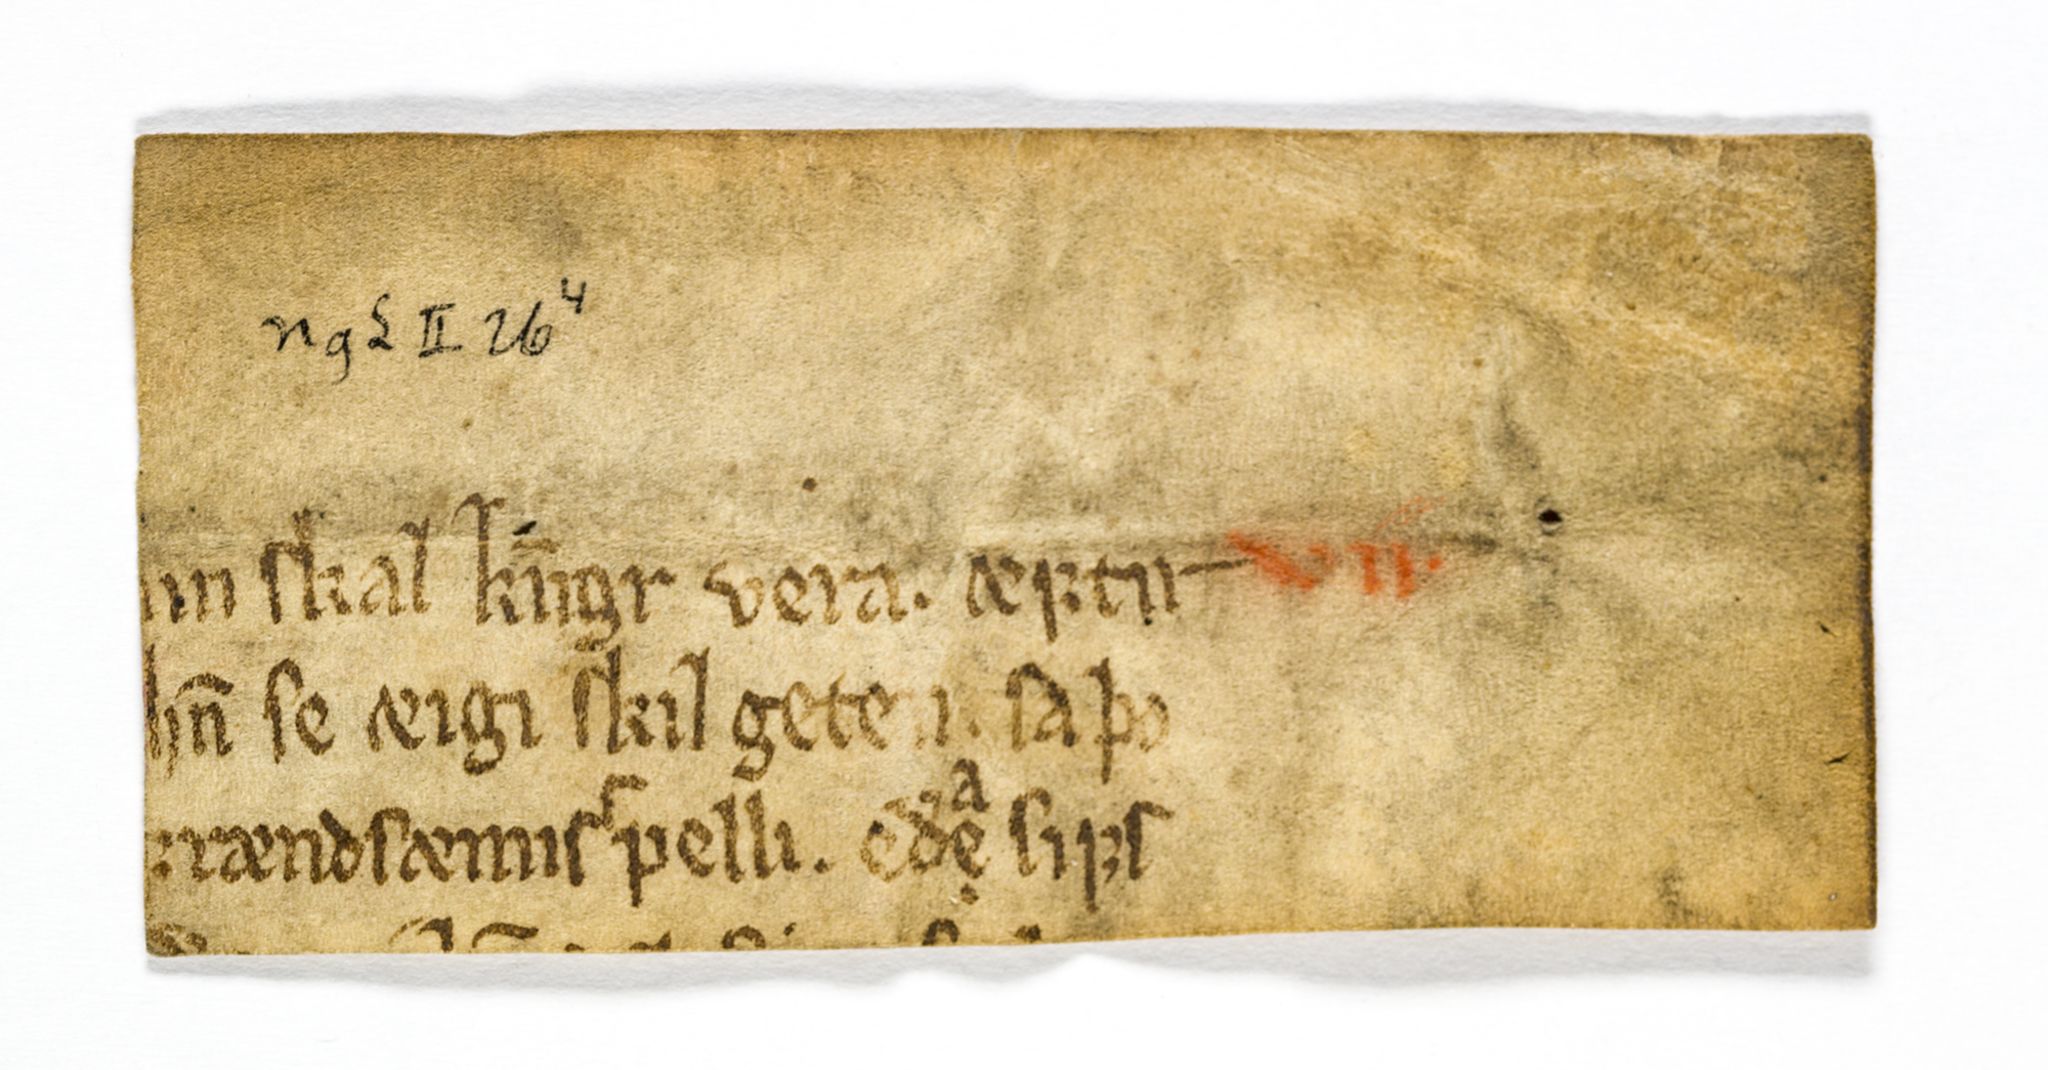 NgL II 26⁴
nn skal kn̄gr vera. æꝼtir VII.
hn̄ se æigi skilgetenn. sa þo
rændsæmis spelli. eðͣa siꝼs